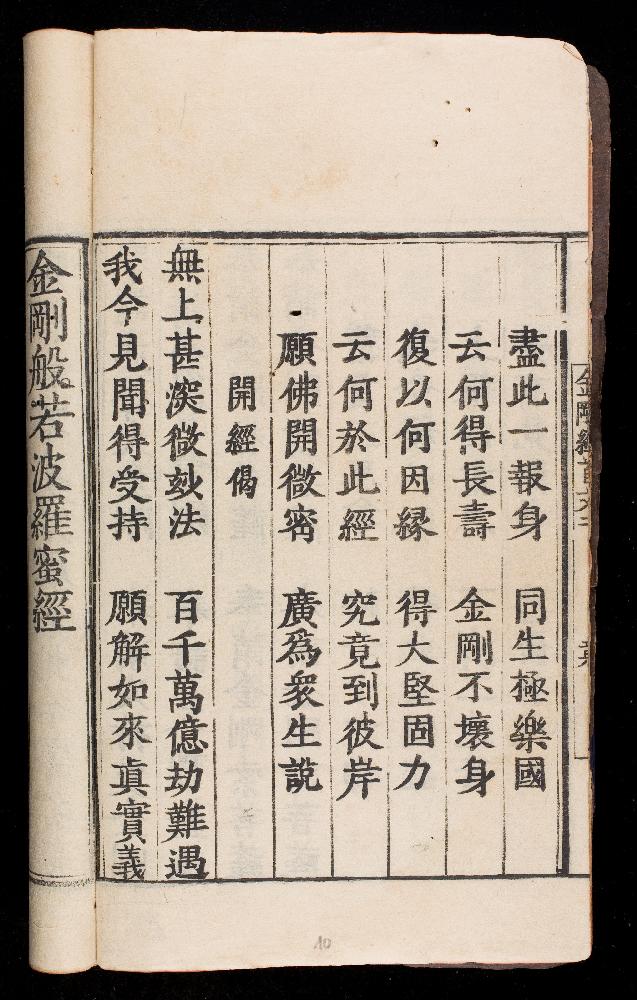 盡此一報身 同生極樂國
云何得長壽 金剛不壞身
復以何因緣 得大堅固力
云何於此經 究竟到彼岸
願佛開微宻 廣爲衆生説
開經偈
無上甚深微玅法 百千萬億劫難遇
我今見聞得受持 願解如來眞實義
金剛般若波羅蜜經
10